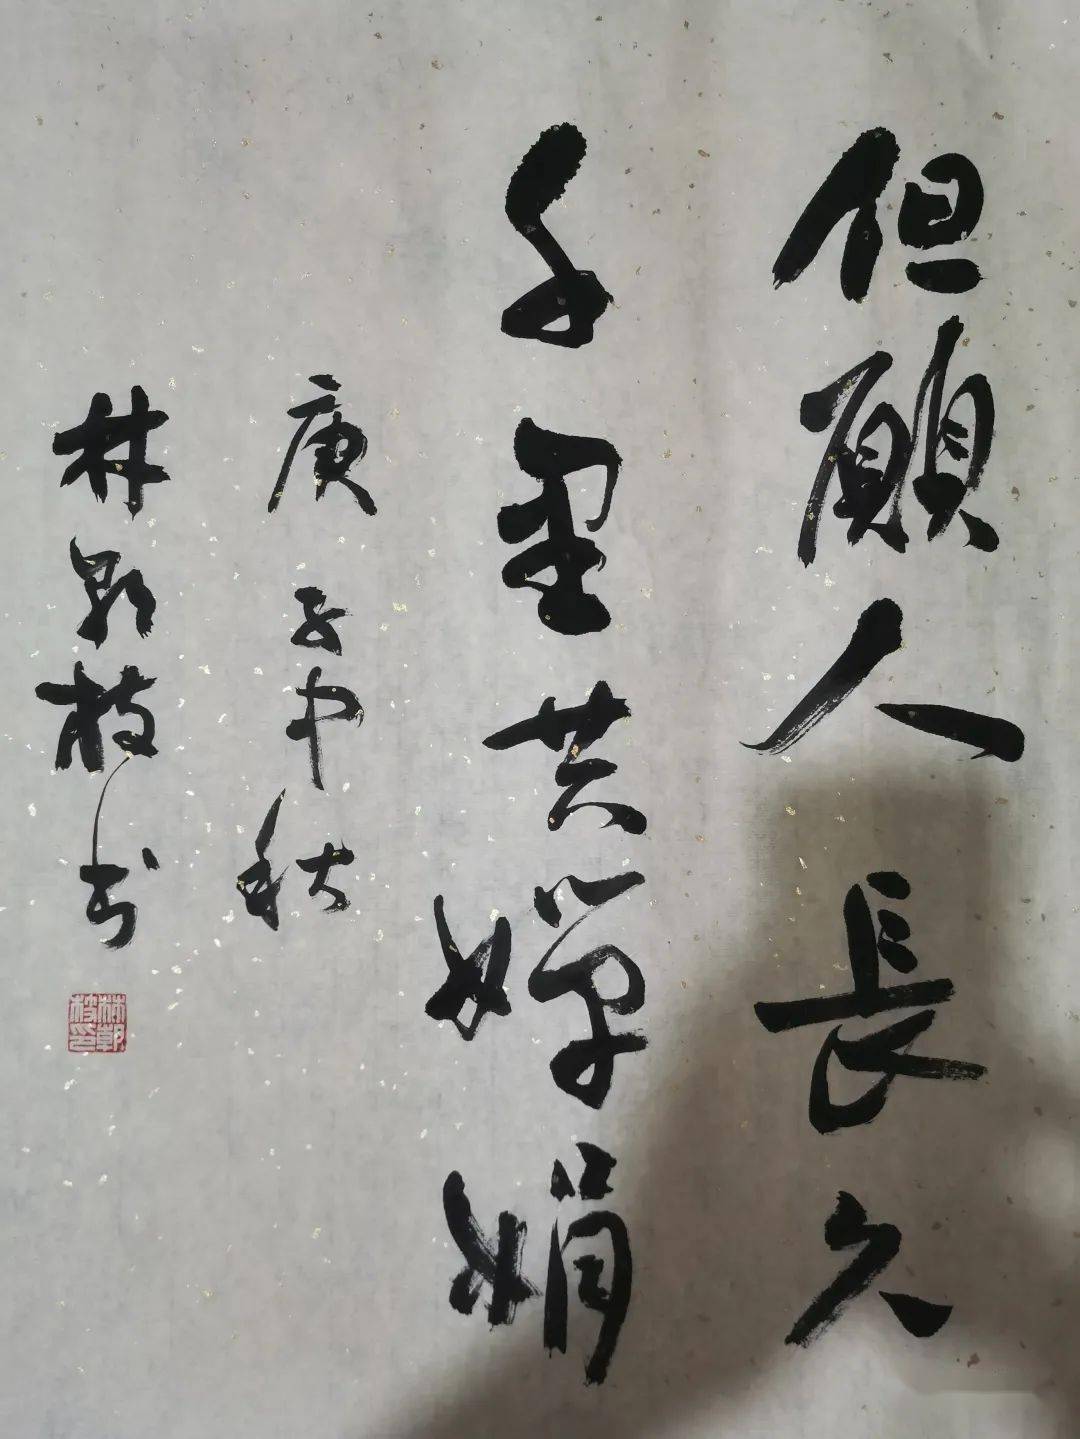 但願人長久
千里共嬋娟
庚子中秋
林郭枝书
林郭枝印